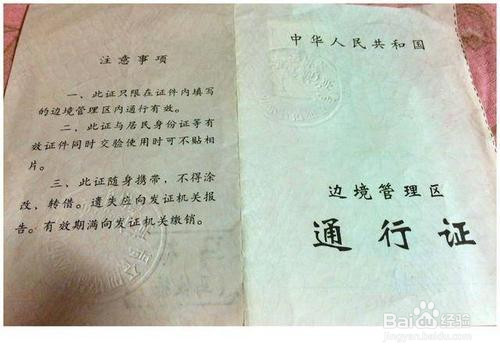 注意事项
一、此证只限在证件内填写
的边境管理区内通行有效。
二、此证与居民身份证等有
效证件同时交验使用时可不贴
相片。
三、此证随身携带，不得涂
改，转借。遗失应向发证机关报
告。有效期满向发证机关缴销。
中华人民共和国
边境管理区
通行证
Baidu经验
jingyan.baidu.com